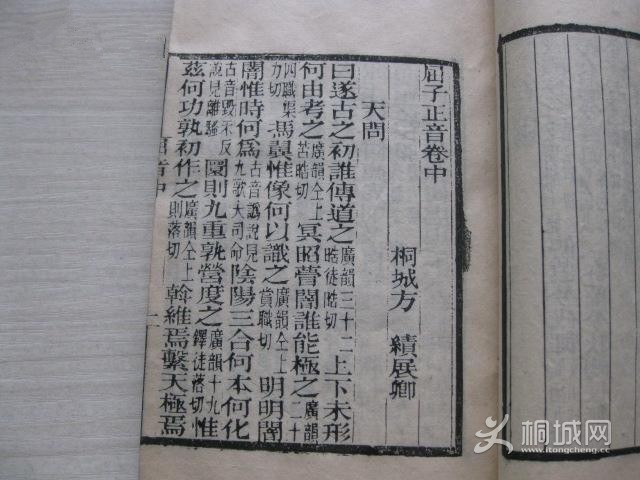 屈子正音卷中
桐城方 績展卿
天問
曰遂古之初誰傳道之廣韻三十二晧徒晧切上下未形
何由考之廣韻仝上苦晧切冥昭瞢闇誰能極之廣韻二十
四職渠力切馮翼惟像何以識之廣韻仝上賞職切明明闇
闇惟時何爲古音譌說見九歌大司命陰陽三合何本何化
古音毀禾反說見離騷圜則九重孰營度之廣韻十九鐸徒落切惟
茲何功孰初作之廣韻仝上則落切斡維焉繫天極焉
桐城网
www.itongcheng.cc